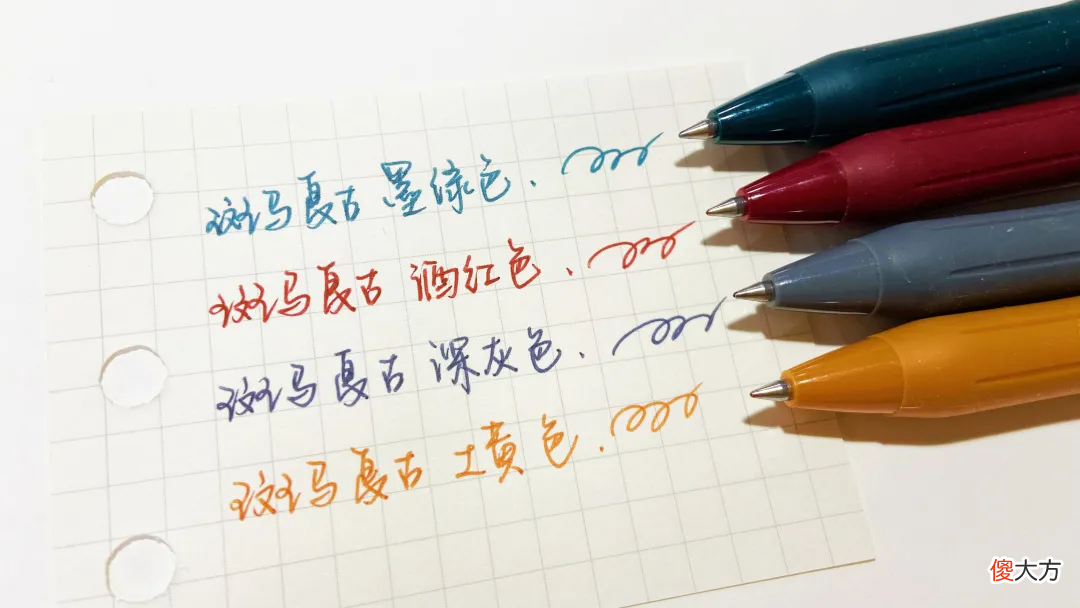 斑马复古 墨绿色.
斑马复古 酒红色.
斑马复古 深灰色.
斑马复古 土黄色.
傻大方